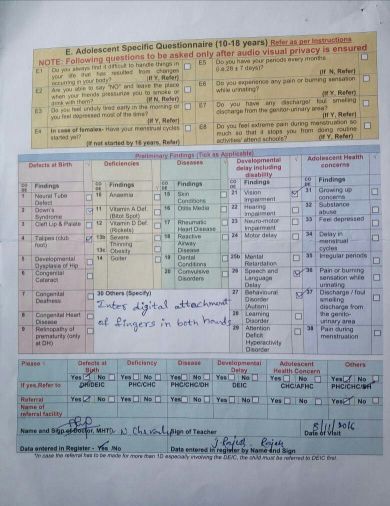 E. Adolescent Specific Questionnaire (10-18 years) Refer as per Instructions
NOTE: Following questions to be asked only after audio visual privacy is ensured
E1 Do you always find it difficult to handle things in your life that has resulted from changes occurring in your body? (If Y, Refer)
E2 Are you able to say "NO" and leave the place when your friends pressurize you to smoke or drink with them? (If N, Refer)
E3 Do you feel unduly tired early in the morning or you feel depressed most of the time? (If Y, Refer)
E4 In case of females- Have your menstrual cycles started yet? (If not started by 16 years, Refer)
E5 Do you have your periods every months (i.e. 28 ± 7 days)? (If N, Refer)
E6 Do you experience any pain or burning sensation while urinating? (If Y, Refer)
E7 Do you have any discharge/ foul smelling discharge from the genitor-urinary area? (If Y, Refer)
E8 Do you feel extreme pain during menstruation so much so that it stops you from doing routine activities/ attend schools? (If Y, Refer)
Preliminary Findings (Tick as Applicable)
Defects at Birth
CODE Findings
1 Neural Tube Defect
2 Down's Syndrome
3 Cleft Lip & Palate
4 Talipes (club foot)
5 Developmental Dysplasia of Hip
6 Congenital Cataract
7 Congenital Deafness
8 Congenital Heart Disease
9 Retinopathy of prematurity (only at DH)
Deficiencies
CODE Findings
10 Anaemia
11 Vitamin A Def. (Bitot Spot)
12 Vitamin D Def. (Rickets)
13b Severe Thinning
13c Obesity
14 Goiter
Diseases
Findings
15 Skin Conditions
16 Otitis Media
17 Rheumatic Heart Disease
18 Reactive Airway Disease
19 Dental Conditions
20 Convulsive Disorders
30 Others (Specify)
Inter digital attachment of fingers in both hands
Developmental delay including disability
CODE Findings
21 Vision Impairment
22 Hearing Impairment
23 Neuro-motor Impairment
24 Motor delay
25b Mental Retardation
26 Speech and Language Delay
27 Behavioural Disorder (Autism)
28 Learning Disorder
29 Attention Deficit Hyperactivity Disorder
Adolescent Health concerns
CODE Findings
31 Growing up concerns
32 Substance abuse
33 Feel depressed
34 Delay in menstrual cycles
35 Irregular periods
36 Pain or burning sensation while urinating
37 Discharge / foul smelling discharge from the genitor-urinary area
38 Pain during menstruation
Please Defects at Birth Deficiency Disease Developmental Delay Adolescent Health Concern Others
Yes No Yes No Yes No Yes No Yes No Yes No
If yes, Refer to DH/DEIC PHC/CHC PHC/CHC/DH DEIC CHC/AFHC PHC/CHC/DH
Referral Yes No Yes No Yes No Yes No Yes No Yes No
Name of referral facility
Name and Sign of Doctor, MHT Sign of Teacher Date of Visit 8/11/2016
Data entered in Register - Yes /No Data entered in register by Name and Sign
*In case the referral has to be made for more than 1D especially involving the DEIC, the child must be referred to DEIC first.